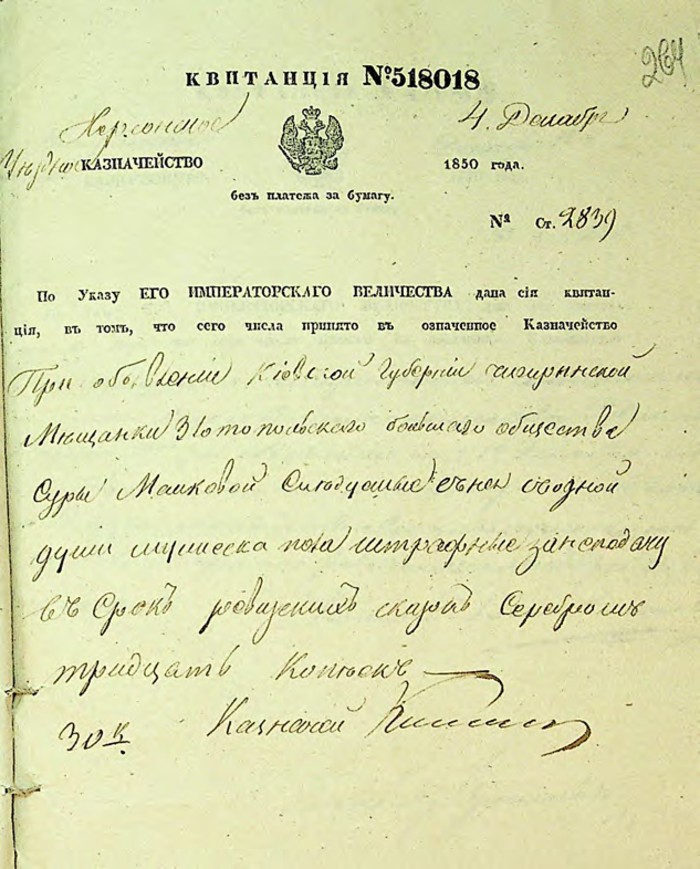 264
КВИТАНЦІЯ №518018
Херсонское
4. Декабря
Уѣздное КАЗНАЧЕЙСТВО
1850 года.
безъ платежа за бумагу.
№ Ст. 2839
По Указу ЕГО ИМПЕРАТОРСКАГО ВЕЛИЧЕСТВА дана сія квитан-
ція, въ томъ, что сего числа принято въ означенное Казначейство
При объявленіи Кіевской Губерніи чигиринской
Мѣщанки Златопольского бывшаго общества
Суры Маиковой Слѣдуемые съ нея одной
души мужеска пола штрафные за неподачу
въ Срокъ ревизскихъ сказокъ Серебромъ
тридцать Копѣекъ
30 к. Казначей